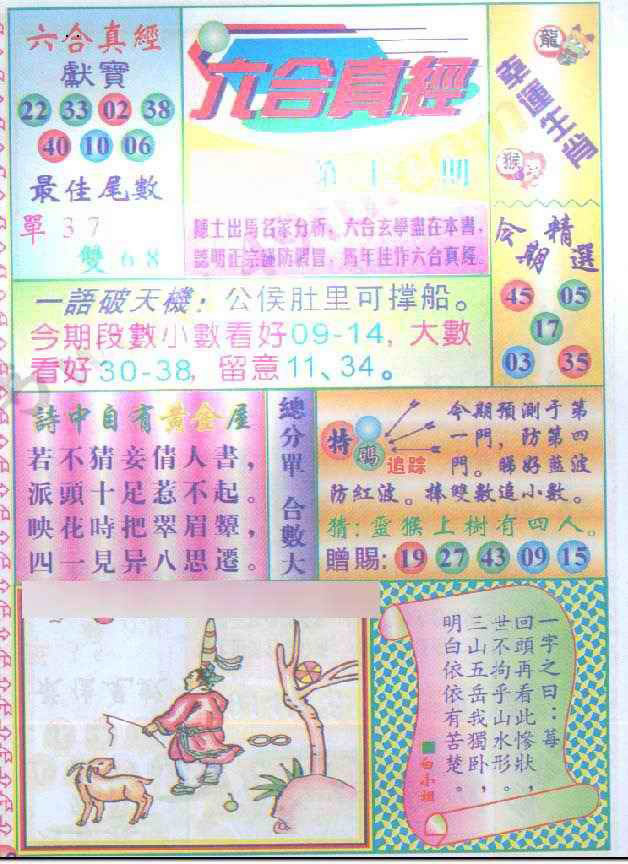 六合真經
獻寶
22 33 02 38
40 10 06
最佳尾數
單 3 7
雙 6 8
六合真經
第十 期
陳士出馬名家分析，六合玄學盡在本書，
認明正宗謹防親冒，馬年佳作六合真經。
龍
幸運生肖
猴
今期精選
45 05
17
03 35
一語破天機：公侯肚里可撐船。
今期段數小數看好09-14，大數
看好30-38，留意11、34。
詩中自有黃金屋
若不猜妾倩人書，
派頭十足惹不起。
映花時把翠眉顰，
四一見异八思遷。
總分單 合數大
特碼追踪
今期預測于第
一門，防第四
門。睇好藍波
防紅波。捧雙數追小數。
猜：靈猴上樹有四人。
贈賜：19 27 43 09 15
一字之曰：莓
回頭再看此慘狀，
世不拘乎山水形，
三山五岳我獨卧，
明白依依有苦楚。
白小姐